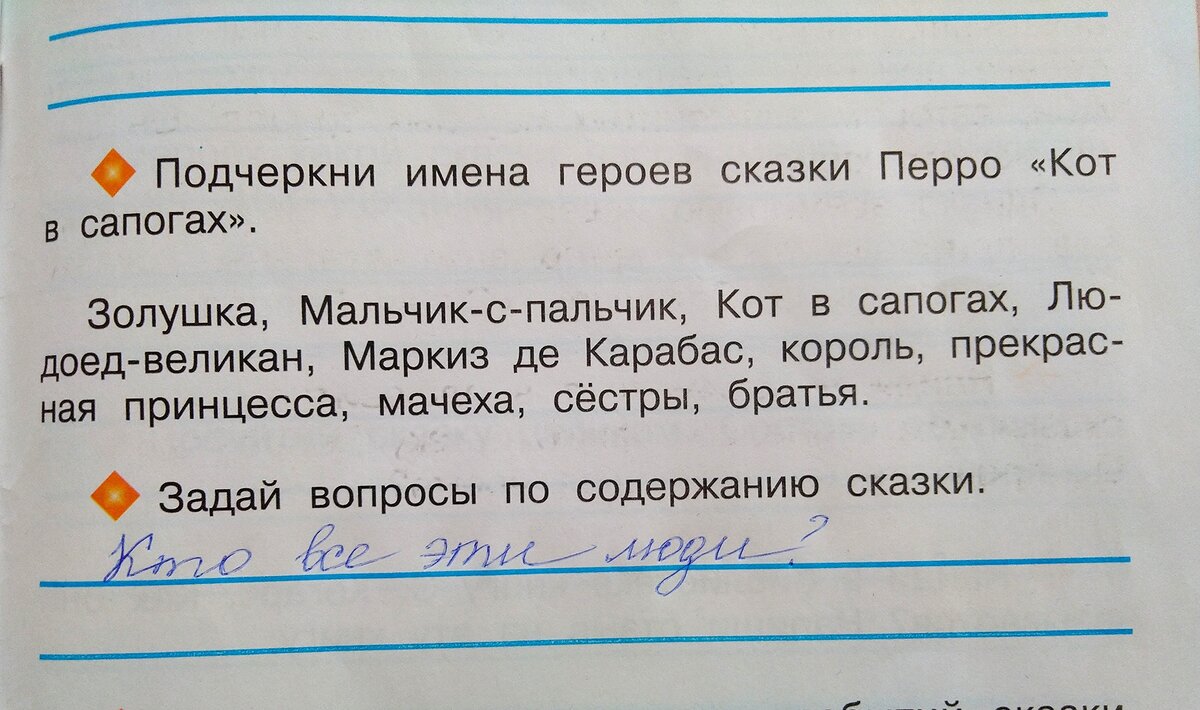 Подчеркни имена героев сказки Перро «Кот
в сапогах».
Золушка, Мальчик-с-пальчик, Кот в сапогах, Лю-
доед-великан, Маркиз де Карабас, король, прекрас-
ная принцесса, мачеха, сёстры, братья.
Задай вопросы по содержанию сказки.
Кто все эти люди?
сказки